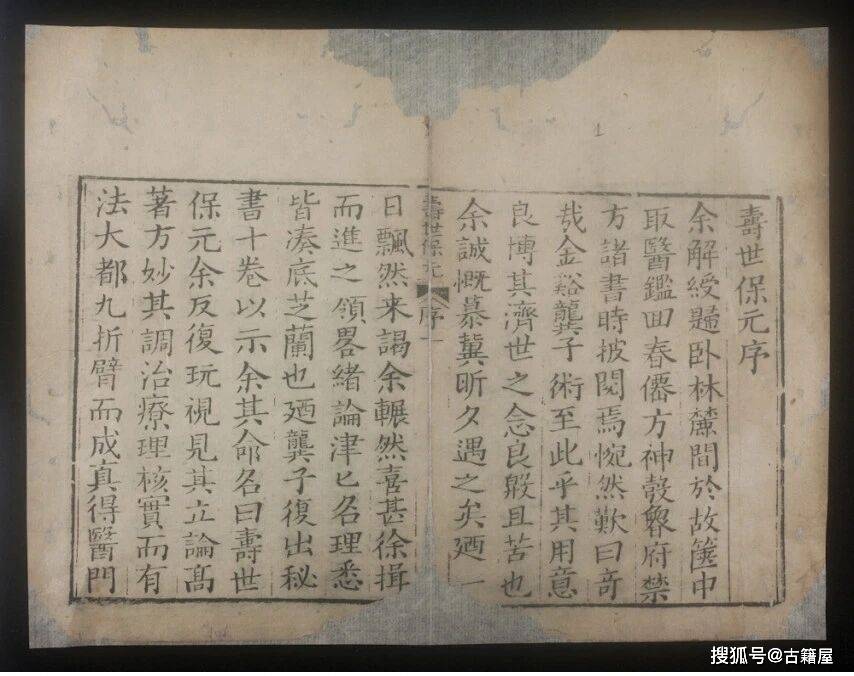 壽世保元序
余解綬歸臥林麓間於故篋中
取醫鑑回春僊方神彀魯府禁
方諸書時披閱焉惋然歎曰奇
哉金谿龔子術至此乎其用意
良博其濟世之念良殷且苦也
余誠慨慕冀昕夕遇之矣廼一
壽世保元 序 一
日飄然来謁余輾然喜甚徐揖
而進之領畧緒論津匕名理悉
皆凑底芝蘭也廼龔子復出秘
書十卷以示余其命名曰壽世
保元余反復玩視見其立論髙
著方妙其調治療理核實而有
法大都九折臂而成真得醫門
搜狐号@古籍屋